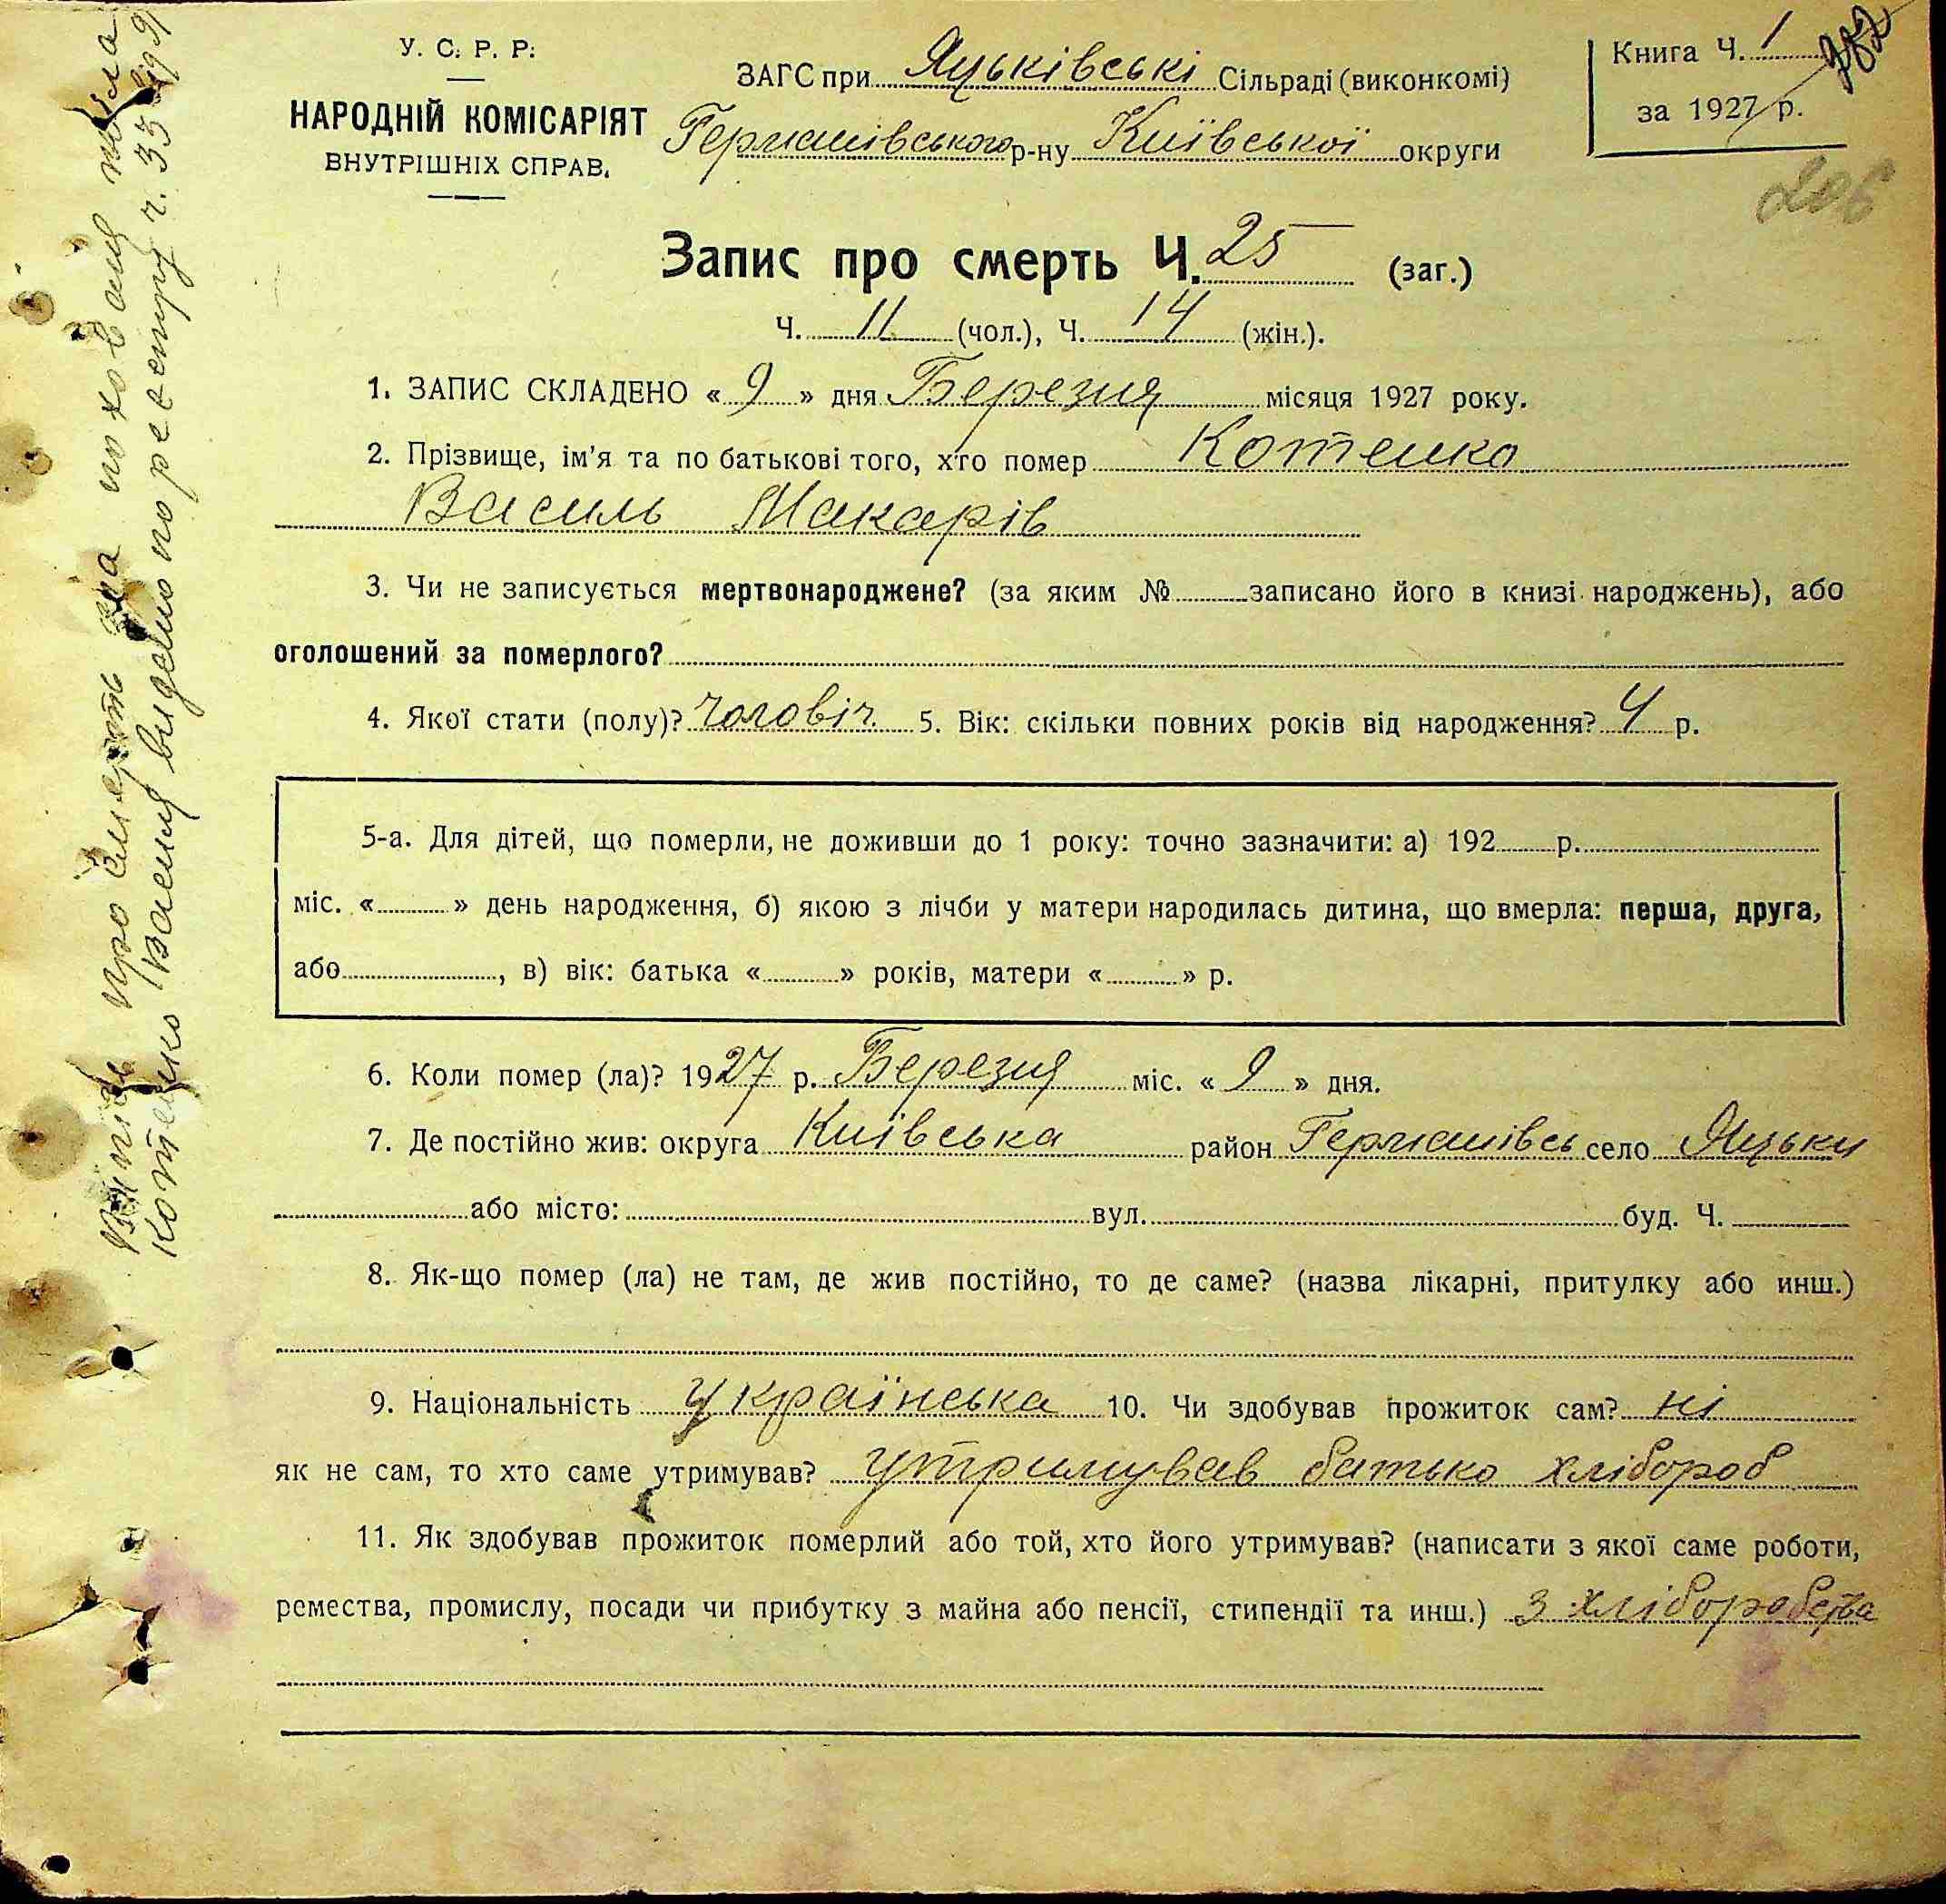 У. С. Р. Р.
НАРОДНІЙ КОМІСАРІЯТ
ВНУТРІШНІХ СПРАВ.
ЗАГС при Яцьківські Сільраді (виконкомі)
Германівського р-ну Київської округи
Книга Ч. 1
за 1927 р.
382
206
Запис про смерть Ч. 25 (заг.)
Ч. 11 (чол.), Ч. 14 (жін.).
1. ЗАПИС СКЛАДЕНО « 9 » дня Березня місяця 1927 року.
2. Прізвище, ім'я та по батькові того, хто помер Котенко
Василь Макарів
3. Чи не записується мертвонароджене? (за яким № записано його в книзі народжень), або
оголошений за померлого?
4. Якої стати (полу)? чоловіч. 5. Вік: скільки повних років від народження? 4 р.
5-а. Для дітей, що померли, не доживши до 1 року: точно зазначити: а) 192 р.
міс. « » день народження, б) якою з лічби у матери народилась дитина, що вмерла: перша, друга,
або , в) вік: батька « » років, матери « » р.
6. Коли помер (ла)? 1927 р. Березня міс. « 9 » дня.
7. Де постійно жив: округа Київська район Германівсь село Яцьки
або місто: вул. буд. Ч.
8. Як-що помер (ла) не там, де жив постійно, то де саме? (назва лікарні, притулку або инш.)
9. Національність українська 10. Чи здобував прожиток сам? ні
як не сам, то хто саме утримував? утримував батько хлібороб
11. Як здобував прожиток померлий або той, хто його утримував? (написати з якої саме роботи,
ремества, промислу, посади чи прибутку з майна або пенсії, стипендії та инш.) З хліборобства
про смерть на поховання
Котенко Василя видано по реєстру ч. 33